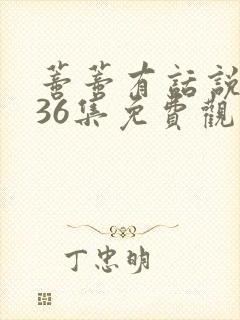 蔷蔷有話說
36集免費觀
丁忠明